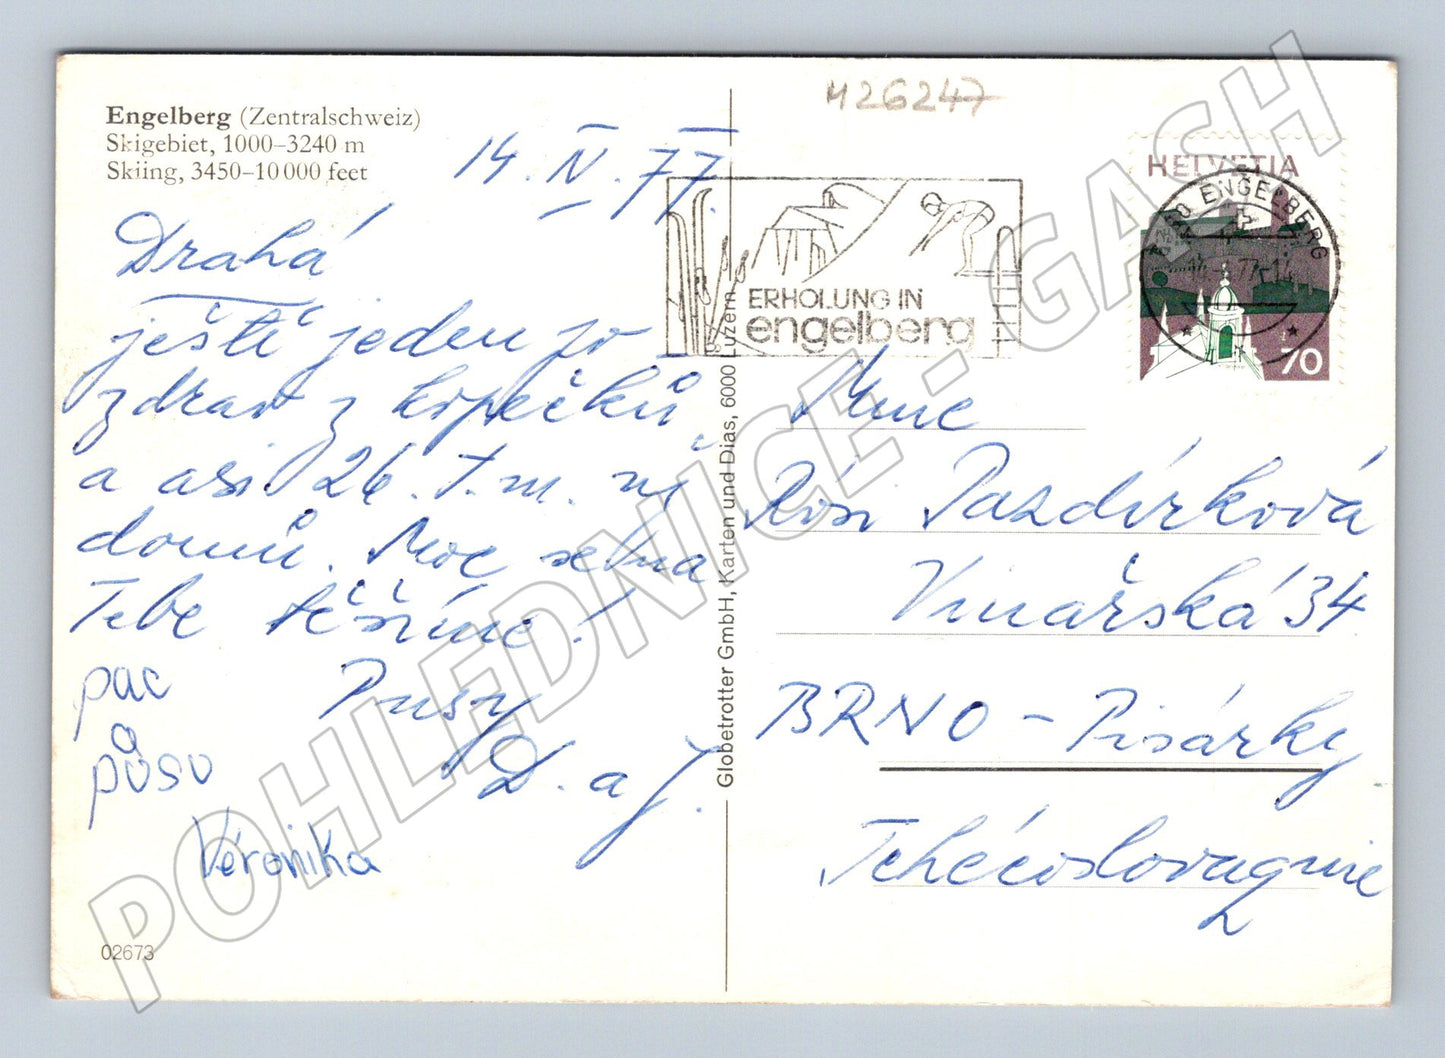 Engelberg (Zentralschweiz)
Skigebiet, 1000–3240 m
Skiing, 3450–10 000 feet
14. IV. 77.
Drahá
ještě jeden po-
zdrav z kopečků
a asi 26. t. m. už
domů. Moc se na
Tebe těšíme!
pac Pusy
a
pusu D. a J.
Veronika
02673
Globetrotter GmbH, Karten und Dias, 6000 Luzern
M26247
ERHOLUNG IN
engelberg
HELVETIA
ENGELBERG
70
Mme
Rósi Pazdírková
Vinařská 34
BRNO - Pisárky
Tchécoslovaquie
POHLEDNICE - GASH